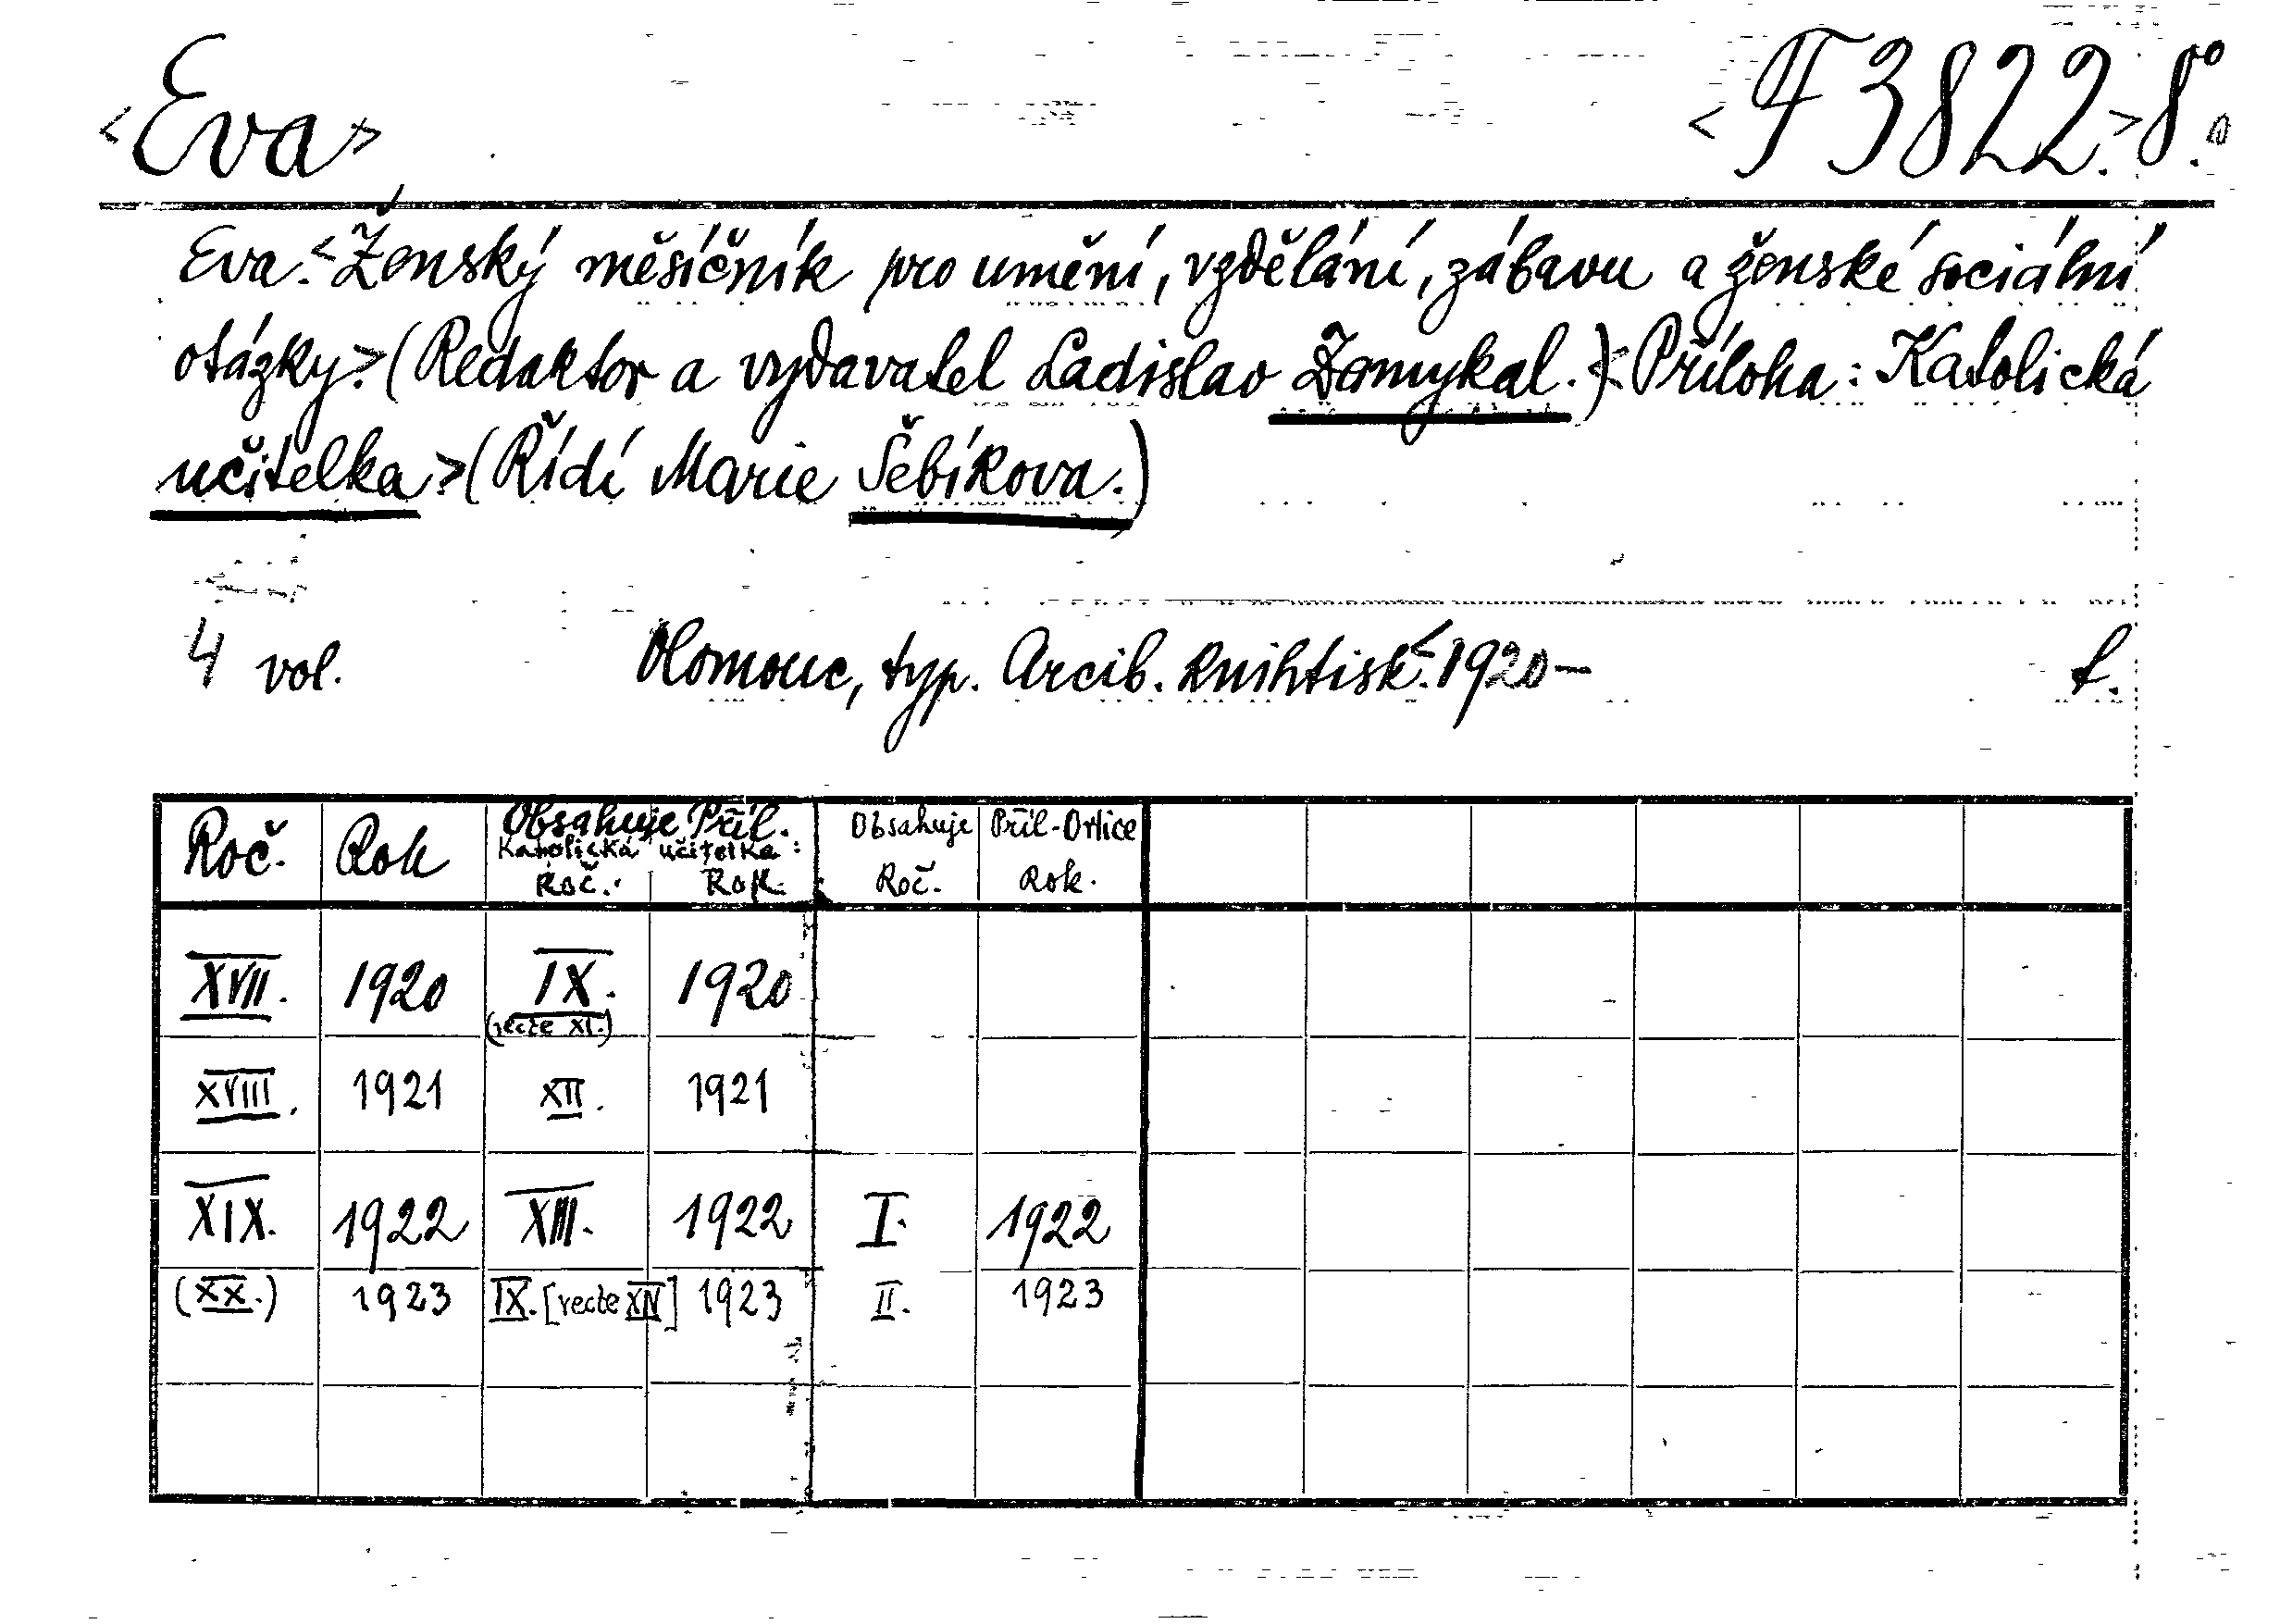 <Eva> <F 3822.> 8°.
Eva. <Ženský měsíčník pro umění, vzdělání, zábavu a ženské sociální
otázky> (Redaktor a vydavatel Ladislav Zamykal.) <Příloha: Katolická
učitelka> (Řídí Marie Šebíkova.)
4 vol. Olomouc, typ. Arcib. knihtisk. <1920– f.
Roč. Rok Obsahuje Příl. Katolická učitelka: Roč. Rok. Obsahuje Roč. Příl-Orlice Rok.
XVII. 1920 IX. (recte XI.) 1920
XVIII. 1921 XII. 1921
XIX. 1922 XIII. 1922 I. 1922
(XX.) 1923 IX. [recte XIV] 1923 II. 1923